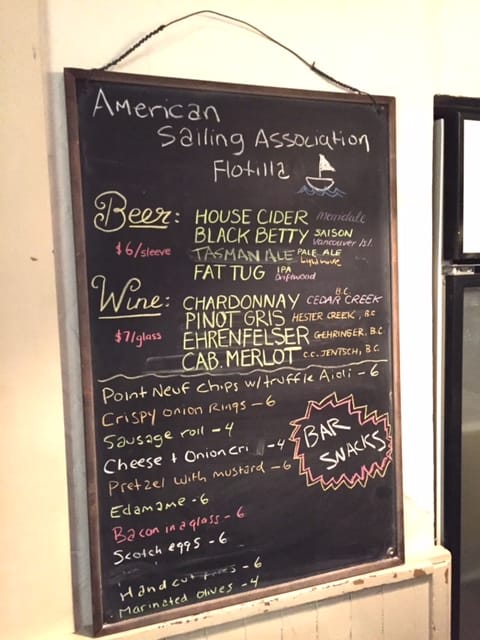 American
Sailing Association
Flotilla
Beer: HOUSE CIDER Merridale
$6/sleeve BLACK BETTY SAISON Vancouver Isl.
TASMAN ALE PALE ALE Lighthouse
FAT TUG IPA Driftwood
Wine: CHARDONNAY B.C. CEDAR CREEK
$7/glass PINOT GRIS HESTER CREEK, B.C
EHRENFELSER GEHRINGER, B.C
CAB. MERLOT C.C. JENTSCH, B.C.
Point Neuf chips w/truffle Aioli - 6
Crispy onion Rings - 6
Sausage roll - 4
Cheese + Onion cri - 4
Pretzel with mustard - 6
Edamame - 6
Bacon in a glass - 6
Scotch eggs - 6
Hand cut - 6
Marinated olives - 4
BAR
SNACKS